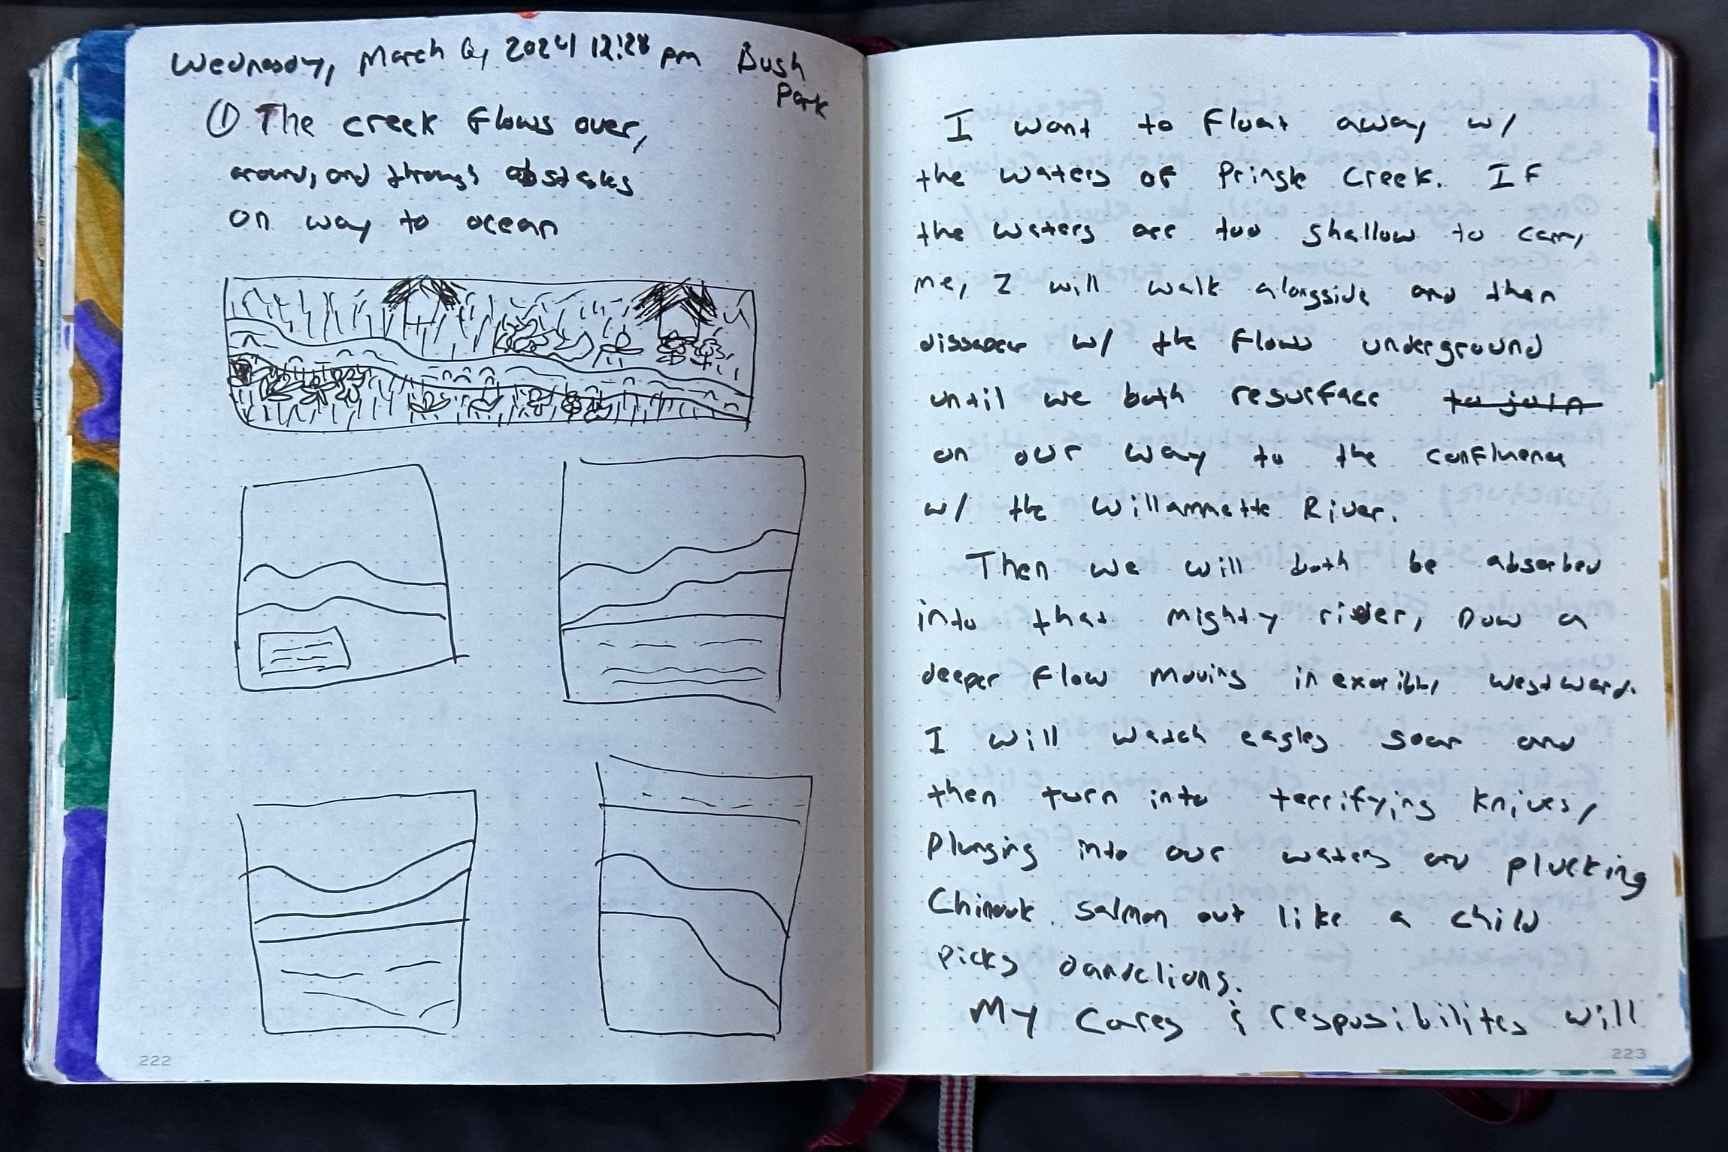 Wednesday, March 6, 2024 12:28 pm Bush
Park
① The creek flows over,
around, and through obstacles
on way to ocean
222
I want to float away w/
the waters of Pringle Creek. If
the waters are too shallow to carry
me, I will walk alongside and then
dissapear w/ the flows underground
until we both resurface to join
on our way to the confluence
w/ the Willammette River.
Then we will both be absorbed
into that mighty river, now a
deeper flow moving inexoribly westward.
I will watch eagles soar and
then turn into terrifying knives,
plunging into our waters and plucking
Chinook salmon out like a child
picks dandelions.
My cares & responsibilites will
223